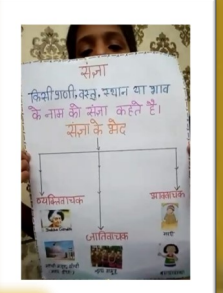 संज्ञा
किसी प्राणी, वस्तु, स्थान या भाव
के नाम को संज्ञा कहते है।
संज्ञा के भेद
व्यक्तिवाचक
भाववाचक
जातिवाचक